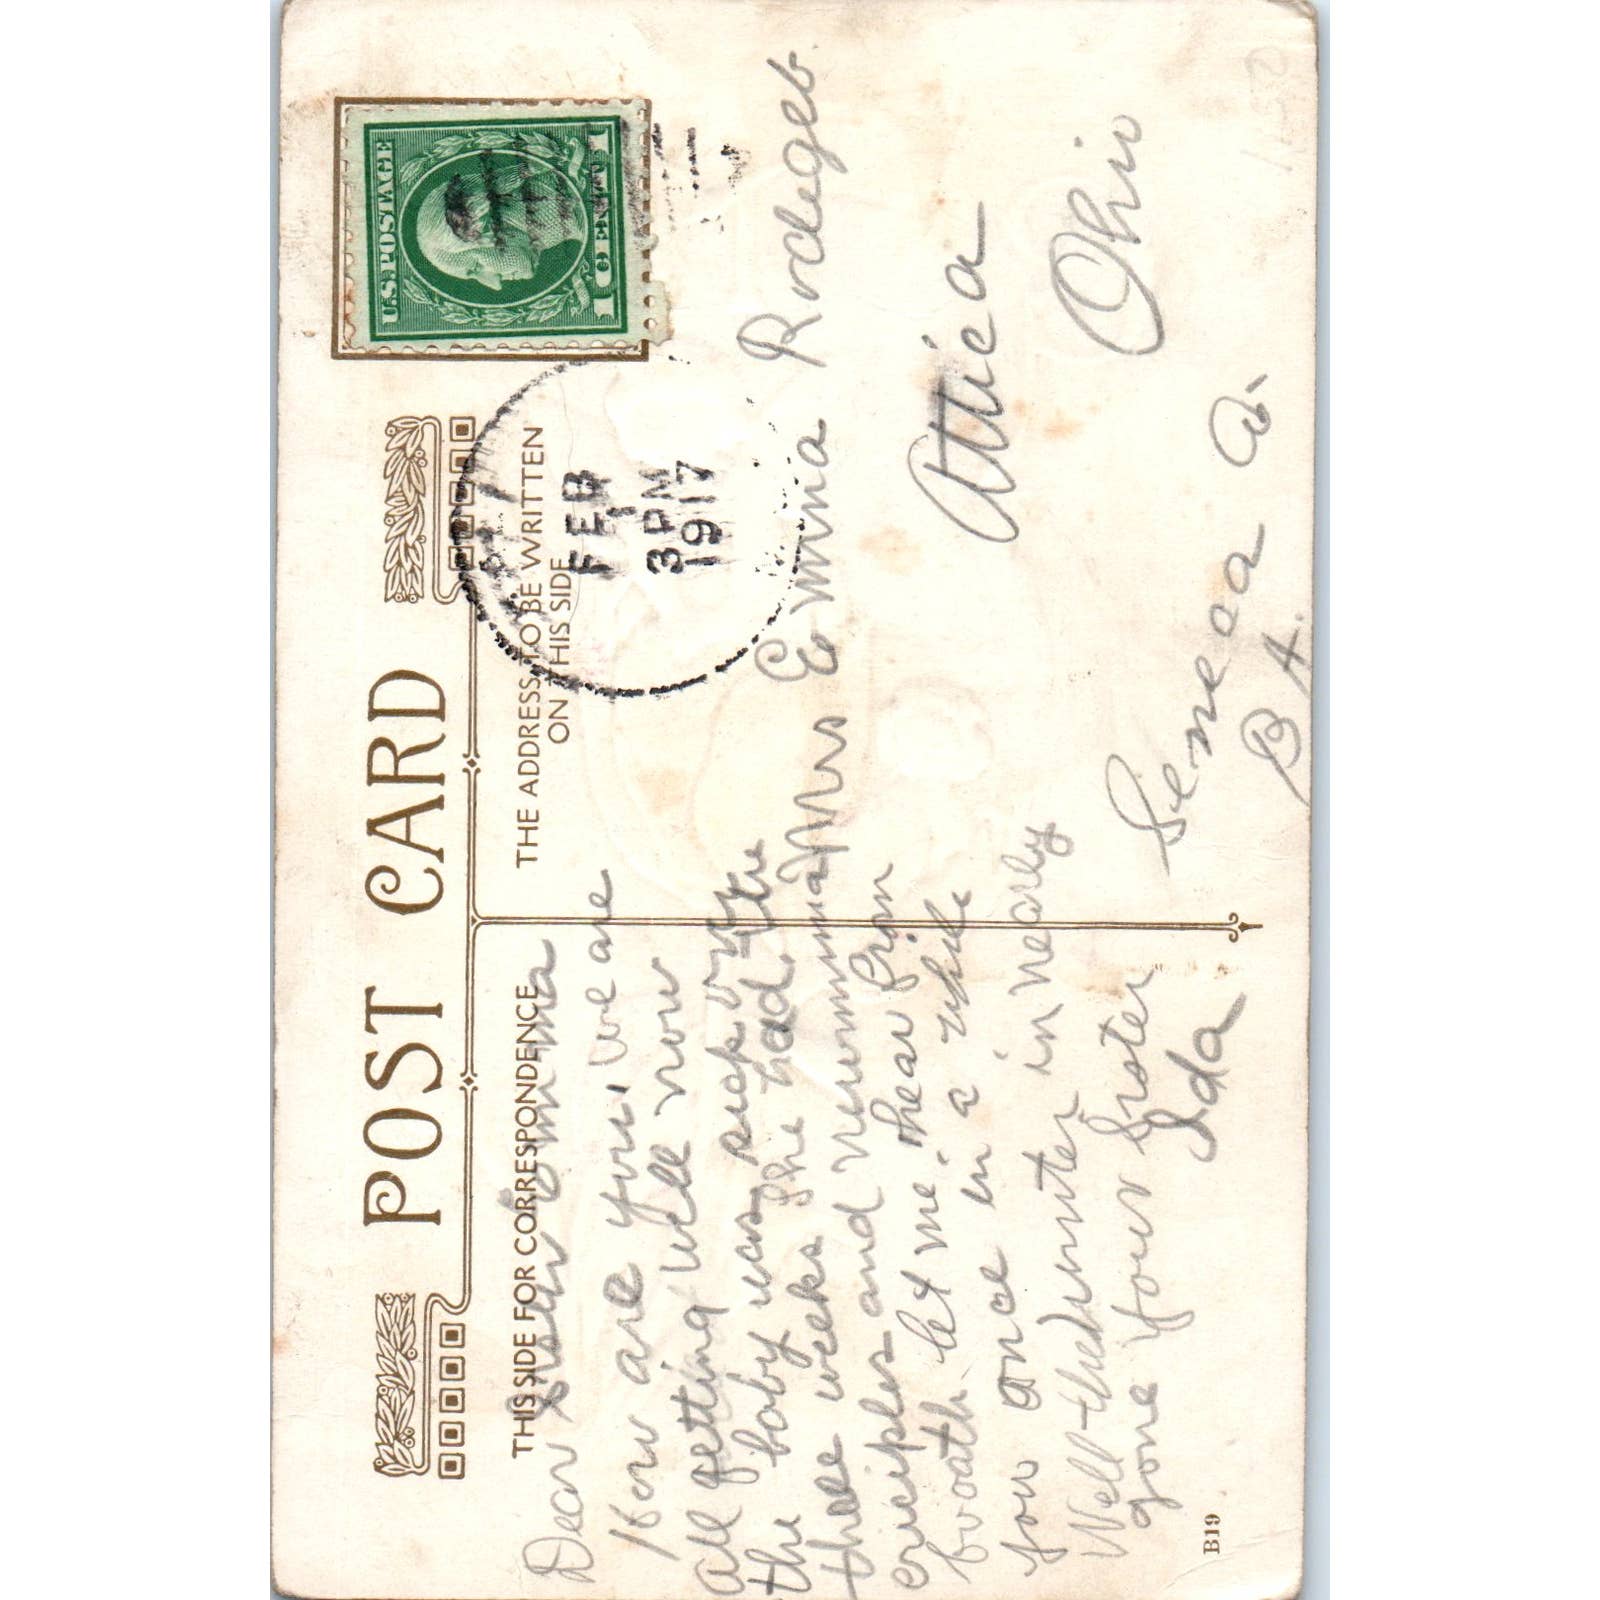 POST CARD
THIS SIDE FOR CORRESPONDENCE
THE ADDRESS TO BE WRITTEN
ON THIS SIDE
U.S. POSTAGE
1 CENT 1
FEB
1
3 PM
1917
Dear Emma
How are you. we are
all getting well now
the baby was sick
three weeks She had the
and
let me hear from
you once in a while
Well the winter in nearly
gone your Sister
Ida
Mrs Emma Rodegeb
Attica
Ohio
Seneca Co.
B19